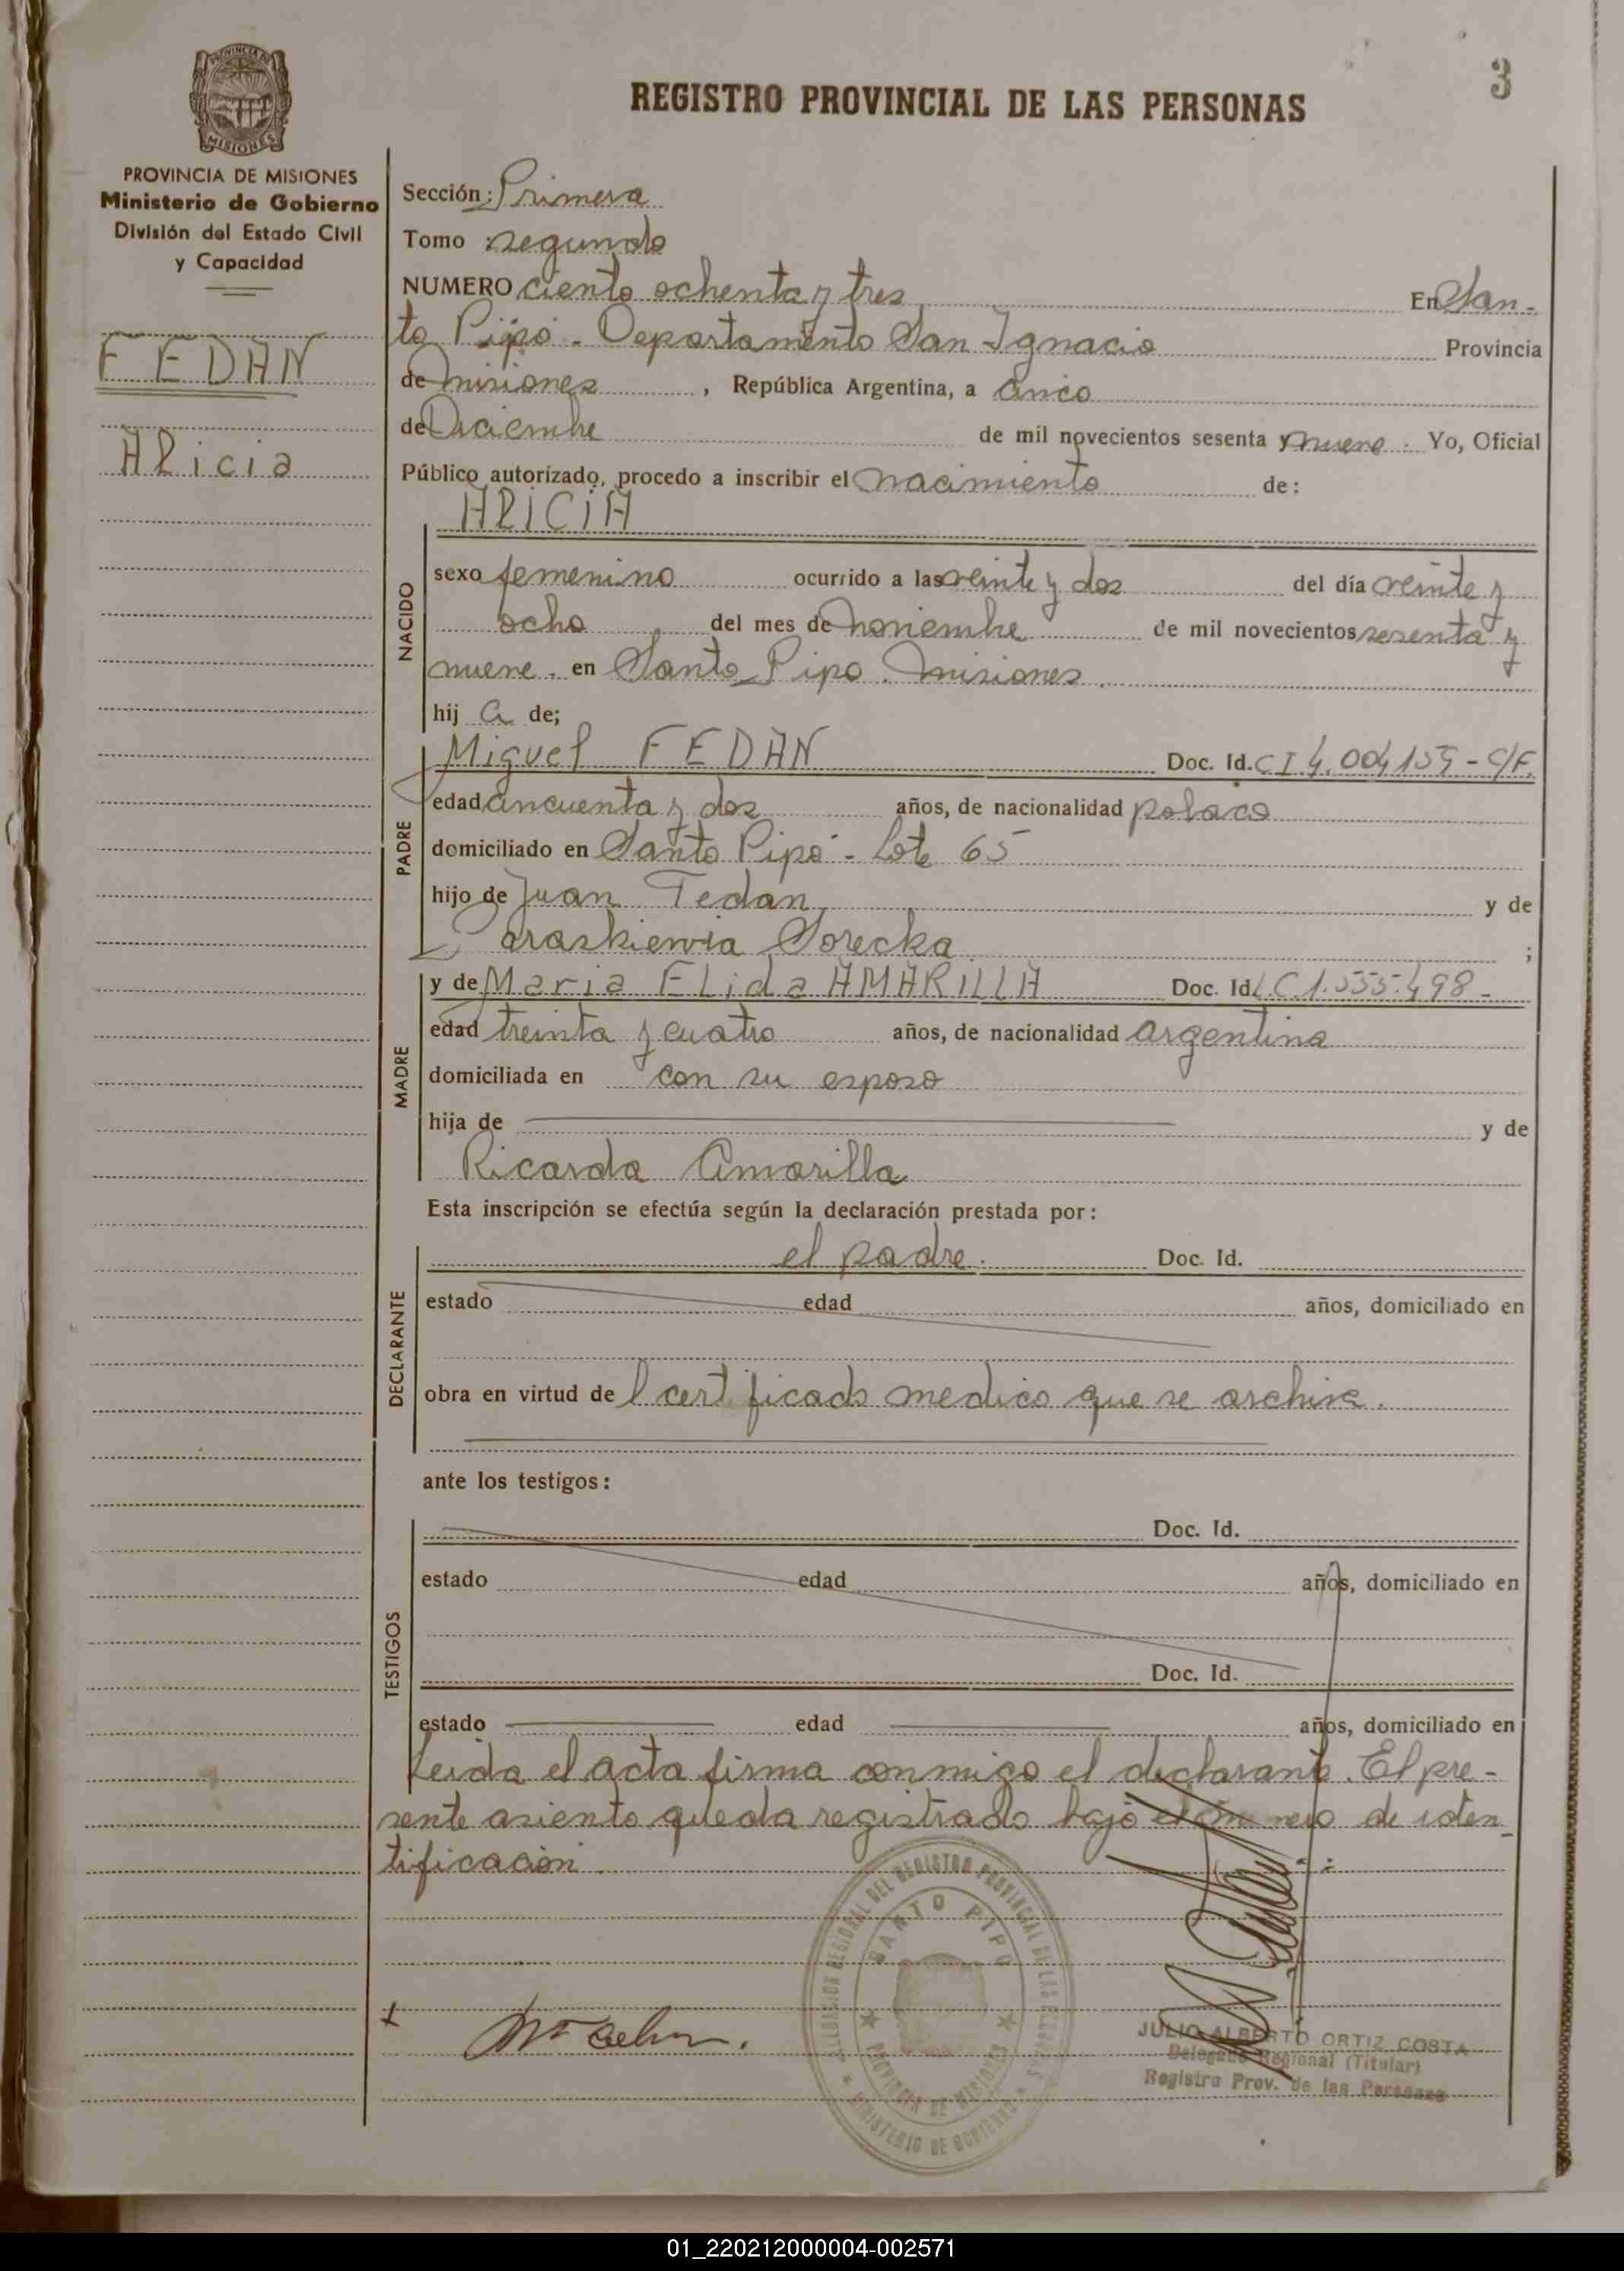 3
REGISTRO PROVINCIAL DE LAS PERSONAS
PROVINCIA DE MISIONES
Ministerio de Gobierno
División del Estado Civil
y Capacidad
FEDAN
Alicia
Sección: Primera
Tomo segundo
NUMERO ciento ochenta y tres En San-
to Pipó - Departamento San Ignacio Provincia
de misiones, República Argentina, a cinco
de Diciembre de mil novecientos sesenta y nueve. Yo, Oficial
Público autorizado, procedo a inscribir el nacimiento de:
ALICIA
NACIDO
sexo femenino ocurrido a las veinte y dos del día veinte y
ocho del mes de noviembre de mil novecientos sesenta y
nueve. en Santo Pipo. misiones.
hij a de;
PADRE
Miguel FEDAN Doc. Id. CI 4.004155-C/F.
edad cincuenta y dos años, de nacionalidad polaco
domiciliado en Santo Pipó - Lote 65
hijo de Juan Fedan y de
Paraskiewia Sorecka ;
MADRE
y de Maria Elida AMARILLA Doc. Id L.C.1.555.498-
edad treinta y cuatro años, de nacionalidad argentina
domiciliada en con su esposo
hija de y de
Ricarda Amarilla
Esta inscripción se efectúa según la declaración prestada por:
DECLARANTE
el padre. Doc. Id.
estado edad años, domiciliado en
obra en virtud de l certificado medico que se archiva.
ante los testigos:
TESTIGOS
Doc. Id.
estado edad años, domiciliado en
Doc. Id.
estado edad años, domiciliado en
Leida el acta firma conmigo el declarante. El pre-
sente asiento queda registrado bajo el número de iden-
tificación.
DELEGACION REGIONAL DEL REGISTRO PROVINCIAL DE LAS PERSONAS
SANTO PIPO
PROVINCIA DE MISIONES
MINISTERIO DE GOBIERNO
JULIO ALBERTO ORTIZ COSTA
Delegado Regional (Titular)
Registro Prov. de las Personas
01_220212000004-002571